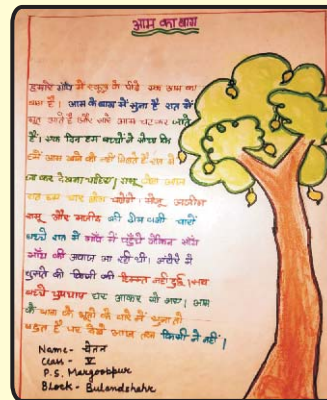 आम का बाग
हमारे गाँव में स्कूल के पीछे एक आम का
बाग है। आम के बाग में सुना है रात में
भूत आते है और सारे आम चटकर जाते
हैं। एक दिन हम बच्चों ने सोचा कि
हमें आम खाने को नहीं मिलते है रात को
जा कर देखना चाहिए। रामू बोला आज
रात हम चार लोग चलेगें। सोनू
रामू और की टीम बनी चारों
बच्चे रात में बाग में पहुँचे लेकिन सांय
सांय की आवाज आ रही थी। अंधेरे में
घुसने की किसी की हिम्मत नहीं हुई। सब
बच्चे चुपचाप घर आकर सो गए। आम
के बाग के भूतों के बारे में सुना तो
बहुत है पर देखा आज तक किसी ने नहीं।
Name- चेतन
Class- V
P.S. Margoobpur
Block- Bulandshahr